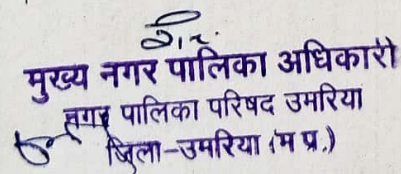 मुख्य नगर पालिका अधिकारी
नगर पालिका परिषद उमरिया
जिला-उमरिया (म प्र.)